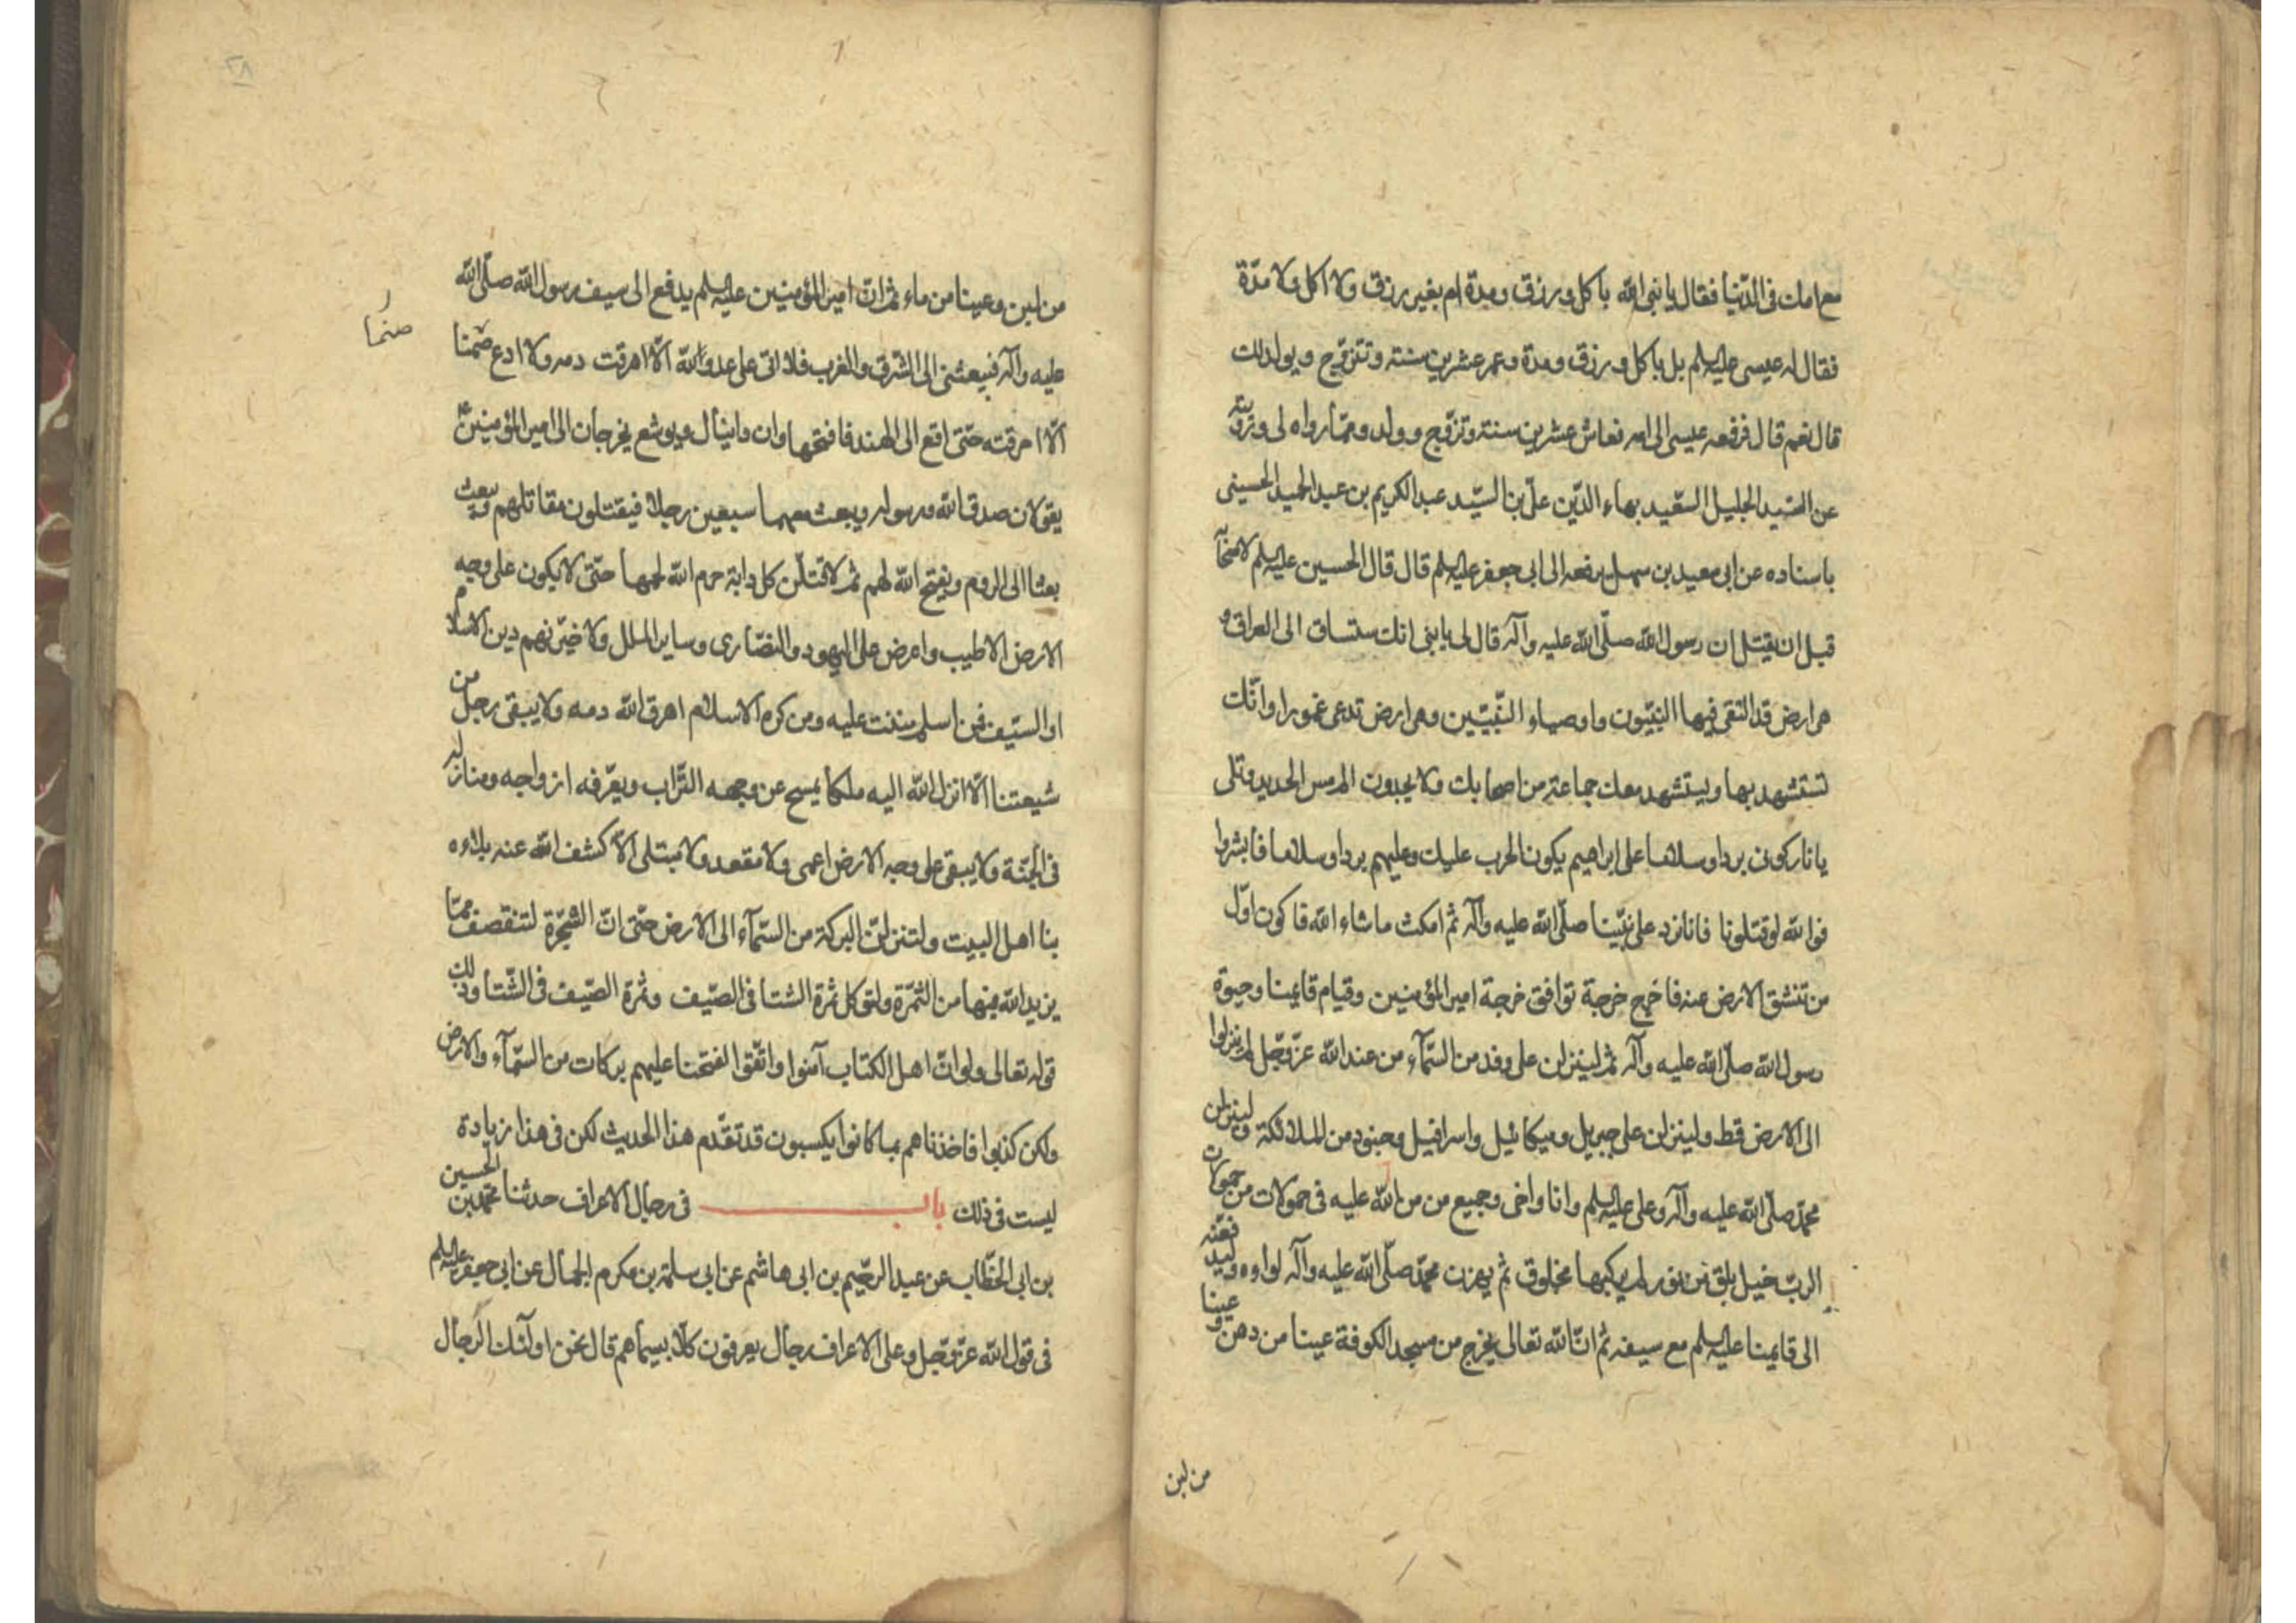 مع امك في الدنيا فقال يا نبي الله باكل و رزق و مدة ام بغير رزق ولا اكل ولا مدة
فقال له عيسى عليه السلم بل باكل و رزق و مدة و عمر عشرين سنة و تتزوج و يولد لك
قال نعم قال فرفعه عيسى الى امه فعاش عشرين سنة و تزوج و ولد و مما رواه لي و رويته
عن السيد الجليل السعيد بهاء الدين علي بن السيد عبد الكريم بن عبد الحميد الحسيني
باسناده عن ابي سعيد بن سهل يرفعه الى ابي جعفر عليه السلم قال قال الحسين عليه السلم لاصحابه
قبل ان يقتل ان رسول الله صلى الله عليه وآله قال لي يا بني انك ستساق الى العراق و
هي ارض قد التقى فيها النبيون و اوصياء النبيين وهي ارض تدعى عمورا و انك
تستشهد بها و يستشهد معك جماعة من اصحابك ولا يجدون الم مس الحديد و تلى
يا نار كوني بردا و سلاما على ابراهيم يكون الحرب عليك و عليهم بردا و سلاما فابشروا
فوالله لو قتلونا فانا نرد على نبينا صلى الله عليه وآله ثم امكث ما شاء الله فاكون اول
من تنشق الارض عنه فاخرج خرجة توافق خرجة امير المؤمنين و قيام قايمنا و حيوة
رسول الله صلى الله عليه وآله ثم لينزلن علي وفد من السمآء من عند الله عز و جل لم ينزلوا
الى الارض قط و لينزلن علي جبريل و ميكائيل و اسرافيل و جنود من الملائكة و لينزلن
محمد صلى الله عليه وآله و علي عليه السلم و انا و اخي و جميع من من الله عليه في حمولات من حمولات
الرب خيل بلق من نور لم يركبها مخلوق ثم ليهزن محمد صلى الله عليه وآله لواوه و ليدفعنه
الى قايمنا عليه السلم مع سيفه ثم ان الله تعالى يخرج من مسجد الكوفة عينا من دهن و عينا
من لبن
٢٨
من لبن و عينا من ماء ثم ان امير المؤمنين عليه السلم يدفع الى سيف رسول الله صلى الله
عليه وآله فيبعثني الى الشرق و الغرب فلا اتى على عدو الله الا اهرقت دمه ولا ادع صنما
صنما
الا احرقته حتى اقع الى الهند فافتحها و ان دانيال و يوشع يخرجان الى امير المؤمنين ع
يقولان صدق الله و رسوله و يبعث معهما سبعين رجلا فيقتلون مقاتلهم و يبعث
بعثا الى الروم و يفتح الله لهم ثم لاقتلن كل دابة حرم الله لحمها حتى لا يكون على وجه
الارض الا طيب و اعرض على اليهود و النصارى و ساير الملل ولاخيرنهم دين الاسلام
او السيف فمن اسلم مننت عليه و من كره الاسلام اهرق الله دمه ولا يبقى رجل من
شيعتنا الا انزل الله اليه ملكا يمسح عن وجهه التراب و يعرفه ازواجه و منازله
في الجنة ولا يبقى على وجه الارض اعمى ولا مقعد ولا مبتلى الا كشف الله عنه بلاءه
بنا اهل البيت و لتنزلن البركة من السمآء الى الارض حتى ان الشجرة لتنقصف مما
يزيد الله فيها من الثمرة و لتوكل ثمرة الشتا في الصيف و ثمرة الصيف في الشتا و ذلك
قوله تعالى ولو ان اهل الكتاب آمنوا و اتقوا لفتحنا عليهم بركات من السمآء و الارض
ولكن كذبوا فاخذناهم بما كانوا يكسبون قد تقدم هذا الحديث لكن في هذا زيادة
ليست في ذلك باب في رجال الاعراف حدثنا محمد بن الحسين
بن ابي الخطاب عن عبد الرحيم بن ابي هاشم عن ابي سلمة بن مكرم الجمال عن ابي جعفر عليه السلم
في قول الله عز و جل و على الاعراف رجال يعرفون كلا بسيماهم قال نحن اولئك الرجال